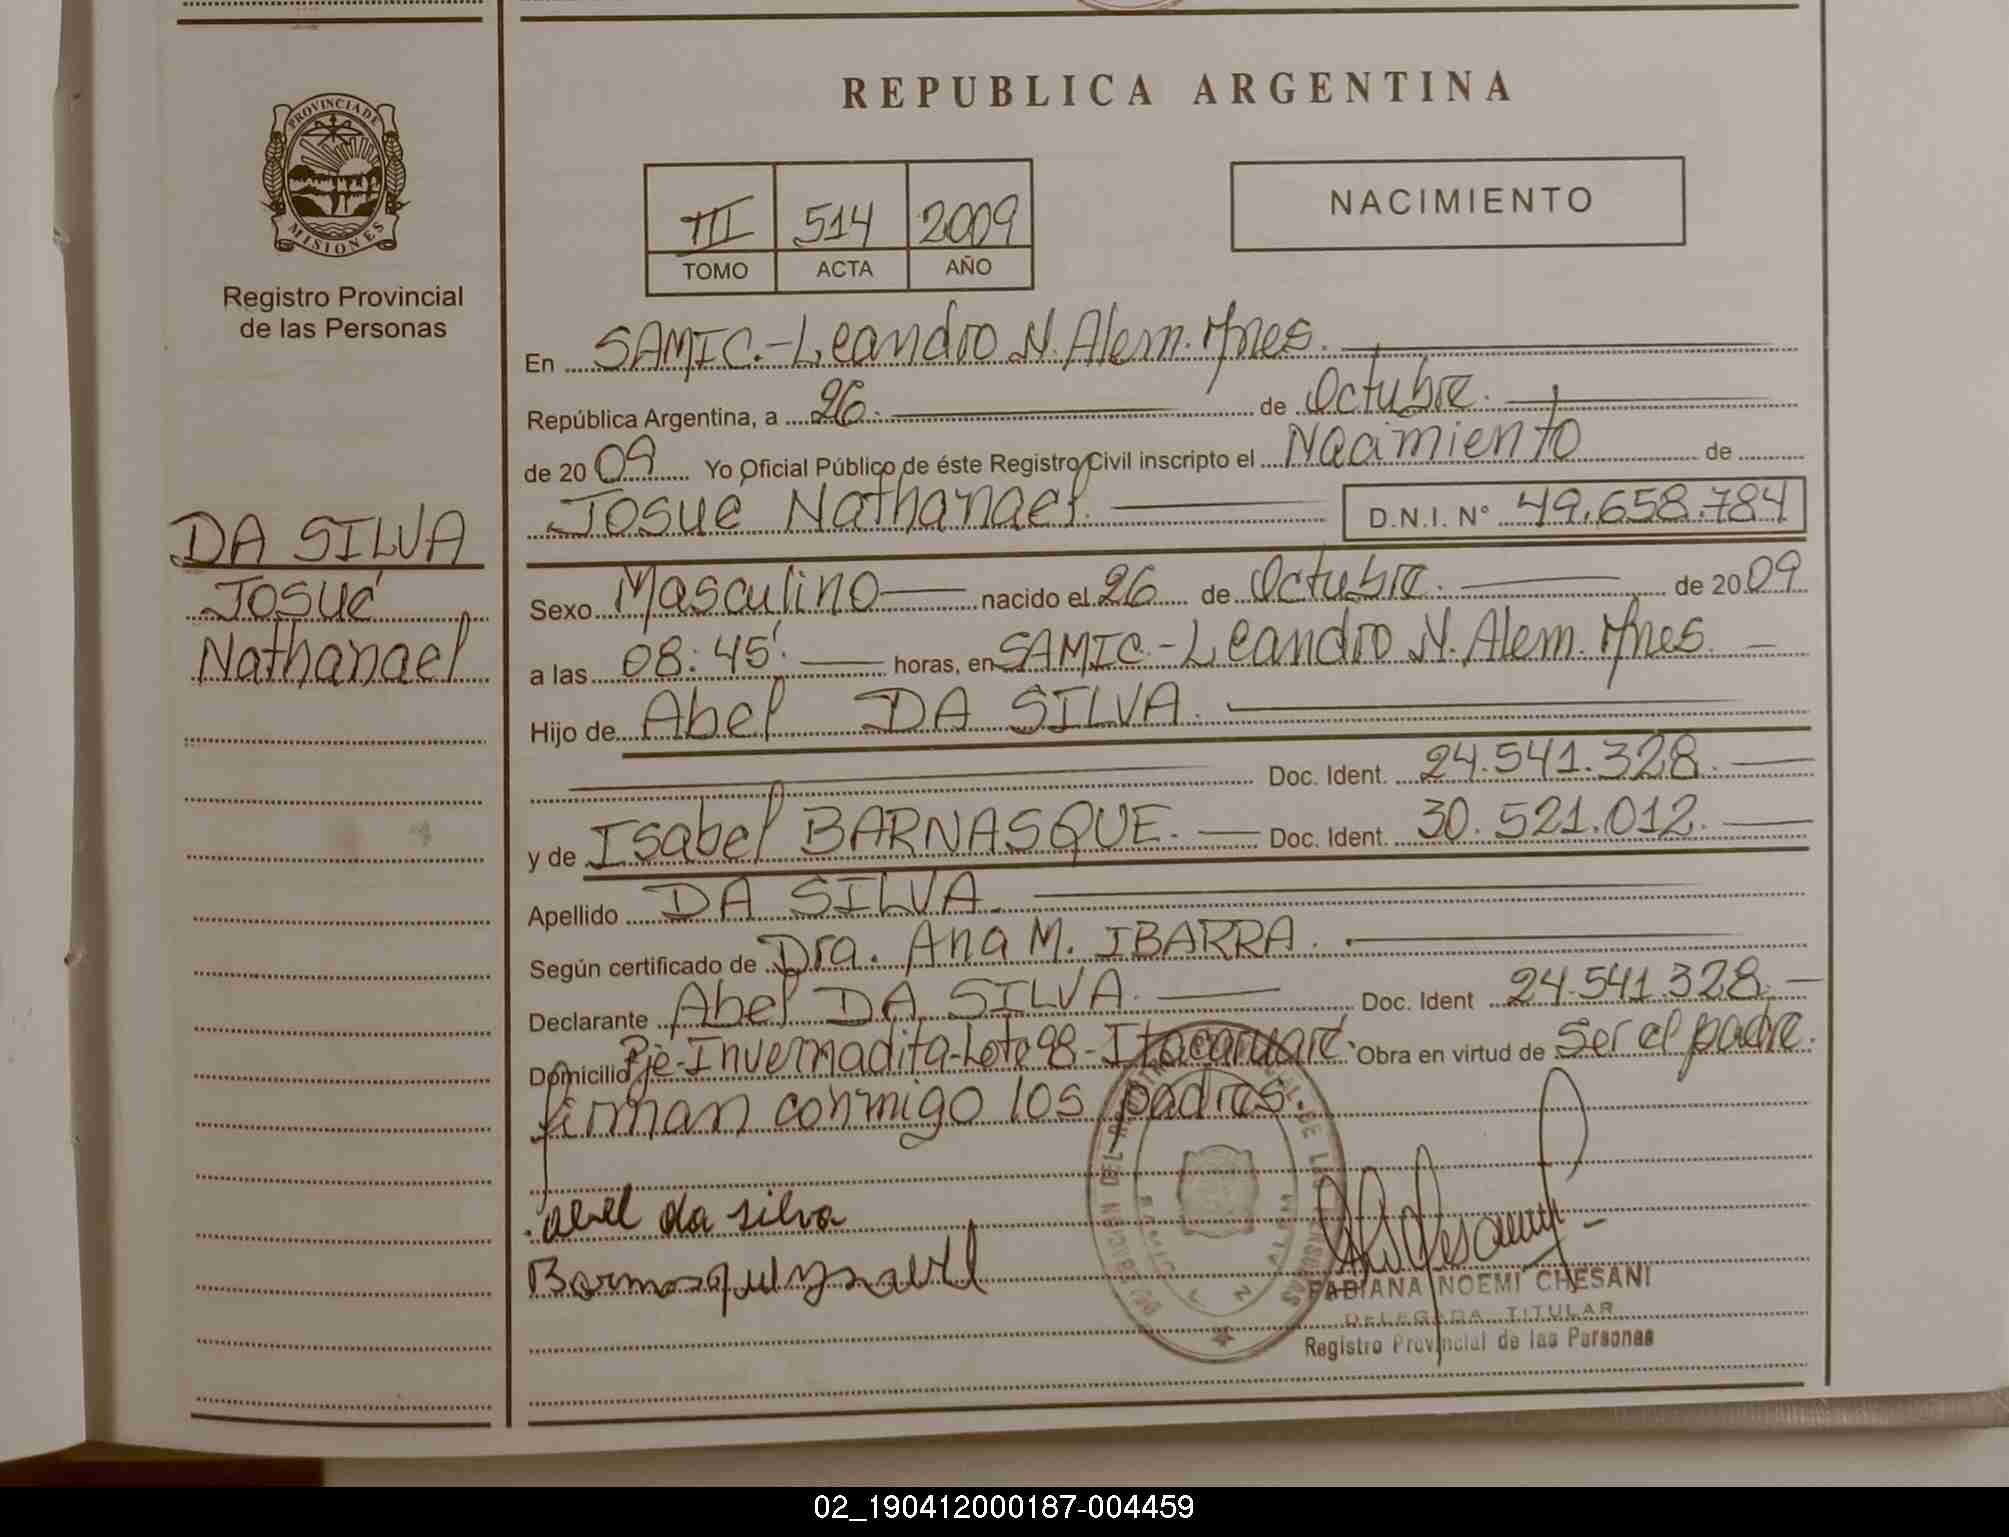 REPUBLICA ARGENTINA
PROVINCIA DE
MISIONES
Registro Provincial
de las Personas
III 514 2009
TOMO ACTA AÑO
NACIMIENTO
DA SILVA
Josué
Nathanael
En SAMIC.-Leandro N. Alem. Mnes.
República Argentina, a 26. de Octubre.
de 2009 Yo Oficial Público de éste Registro Civil inscripto el Nacimiento de
Josue Nathanael. D.N.I. N° 49.658.784
Sexo Masculino nacido el 26 de Octubre. de 2009
a las 08:45'. horas, en SAMIC.-Leandro N. Alem. Mnes.
Hijo de Abel DA SILVA.
Doc. Ident. 24.541.328.
y de Isabel BARNASQUE. Doc. Ident. 30.521.012.
Apellido DA SILVA.
Según certificado de Dra. Ana M. IBARRA.
Declarante Abel DA SILVA. Doc. Ident 24.541.328.
Domicilio Pje-Invernadita-Lote 98-Itacaruaré. Obra en virtud de Ser el padre.
firman conmigo los padres.
abel da silva
FABIANA NOEMI CHESANI
DELEGADA TITULAR
Registro Provincial de las Personas
02_190412000187-004459